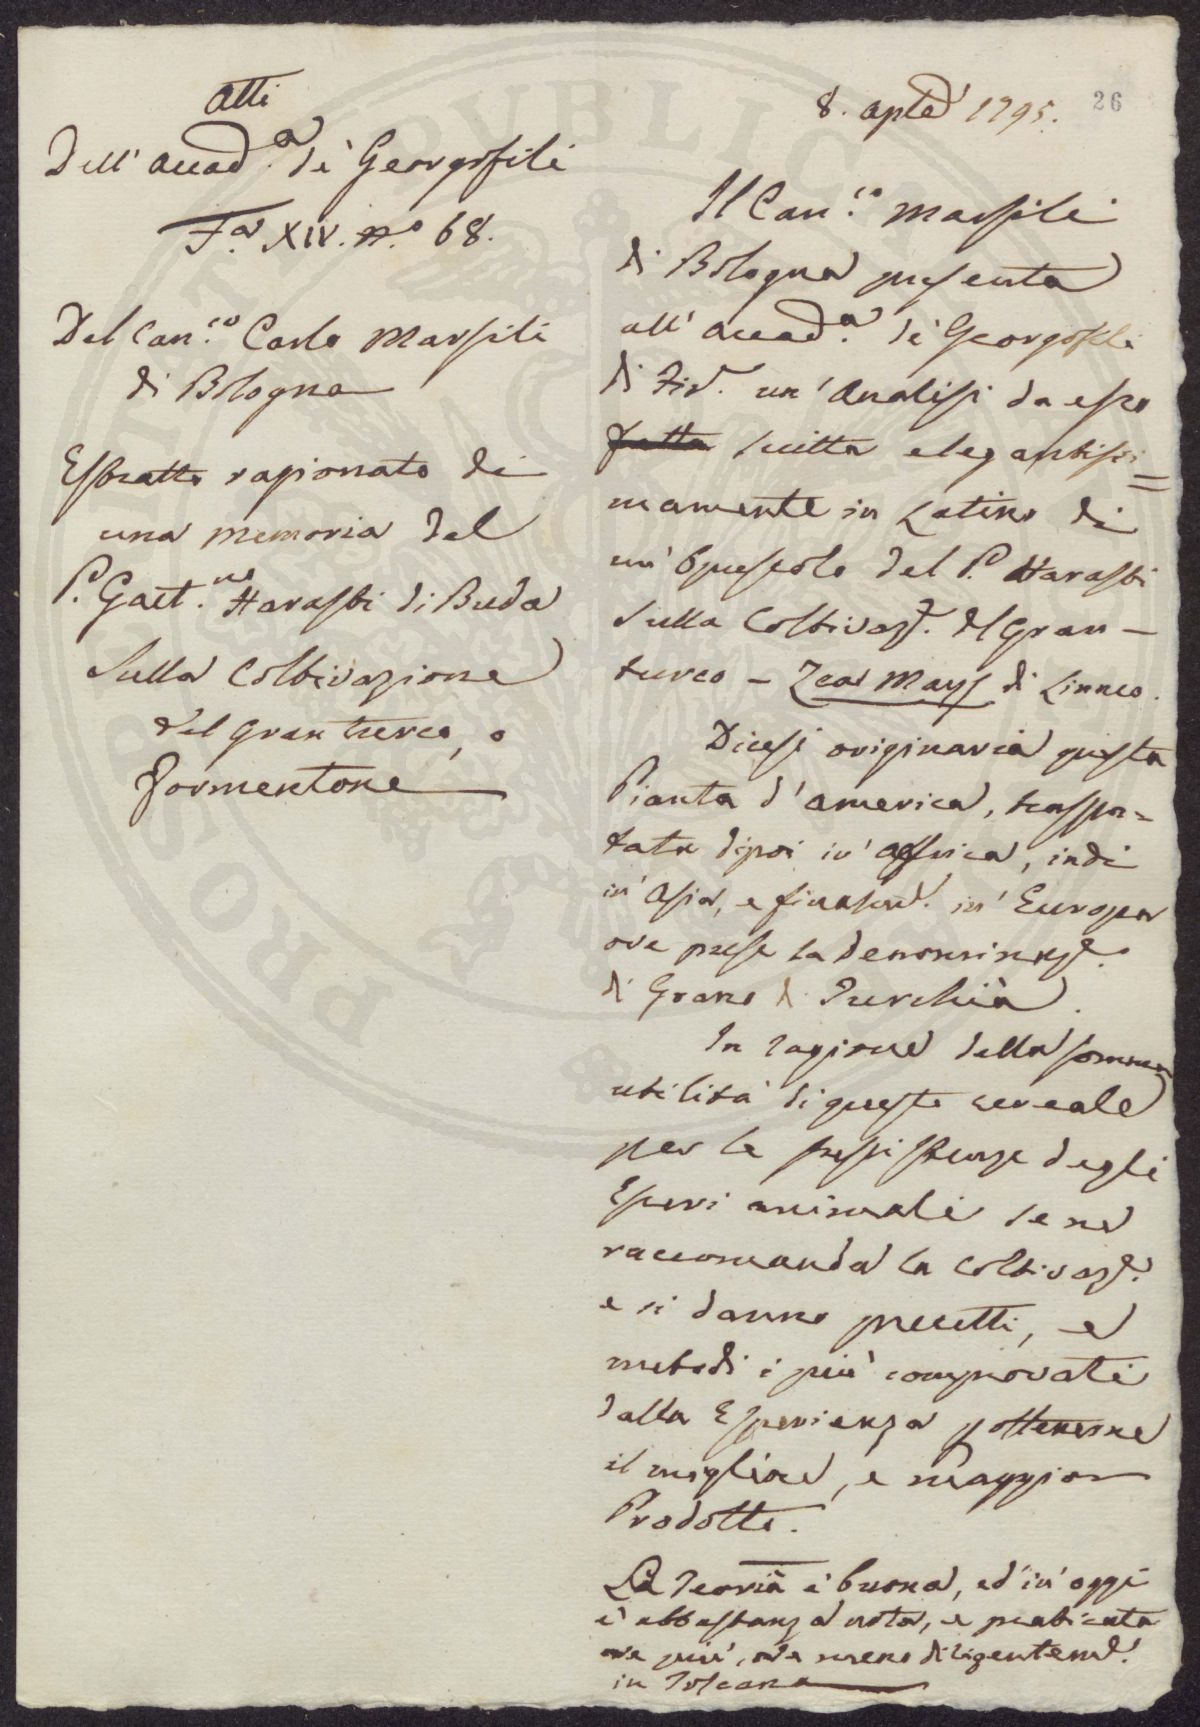 Atti
Dell' Accad.a de' Georgofili
F.a XIV. n.o 68.
Del Can.co Carlo Marsili
di Bologna
Estratto ragionato di
una memoria del
P. Gaet.no Harasti di Buda
Sulla Coltivazione
del gran turco, o
formentone
8. 1795.
26
Il Can.co Marsili
di Bologna presenta
all' Accad.a de' Georgofili
di Fir.e un' Analisi da esso
fatta scritta elegantissi=
mamente in Latino di
un' Opuscolo del P. Harasti
Sulla Coltivaz.e del Gran-
turco - Zea Mays di Linneo.
Dicesi originaria questa
Pianta d' America, traspor=
tata dipoi in' Affrica, indi
in' Asia, e finalm.e in' Europa
ove prese la denominaz.e
di Grano di Turchia.
In ragione della somma
utilità di questo cereale
per la sussistenza degli
Esseri animali se ne
raccomanda la coltivaz.e
e si danno precetti, e
metodi i più comprovati
dalla Esperienza p ottenerne
il migliore, e maggior
Prodotto.
La Teoria è buona, ed in' oggi
è abbastanza nota, e praticata
ove più, ove meno diligentem.e
in Toscana
PROSPERITATI PUBLICAE